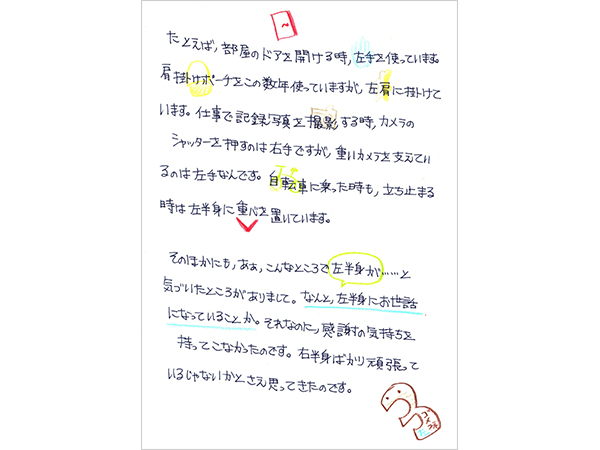 たとえば、部屋のドアを開ける時、左手を使っています。
肩掛けポーチをこの数年使っていますが、左肩に掛けて
います。仕事で記録写真を撮影する時、カメラの
シャッターを押すのは右手ですが、重いカメラを支えてい
るのは左手なんです。自転車に乗った時も、立ち止まる
時は左半身に重心を置いています。
そのほかにも、あぁ、こんなところで左半身が……と
気づいたところがありまして。なんと、左半身にお世話
になっていることか。それなのに、感謝の気持ちを
持ってこなかったのです。右半身ばかり頑張って
いるじゃないかとさえ思ってきたのです。